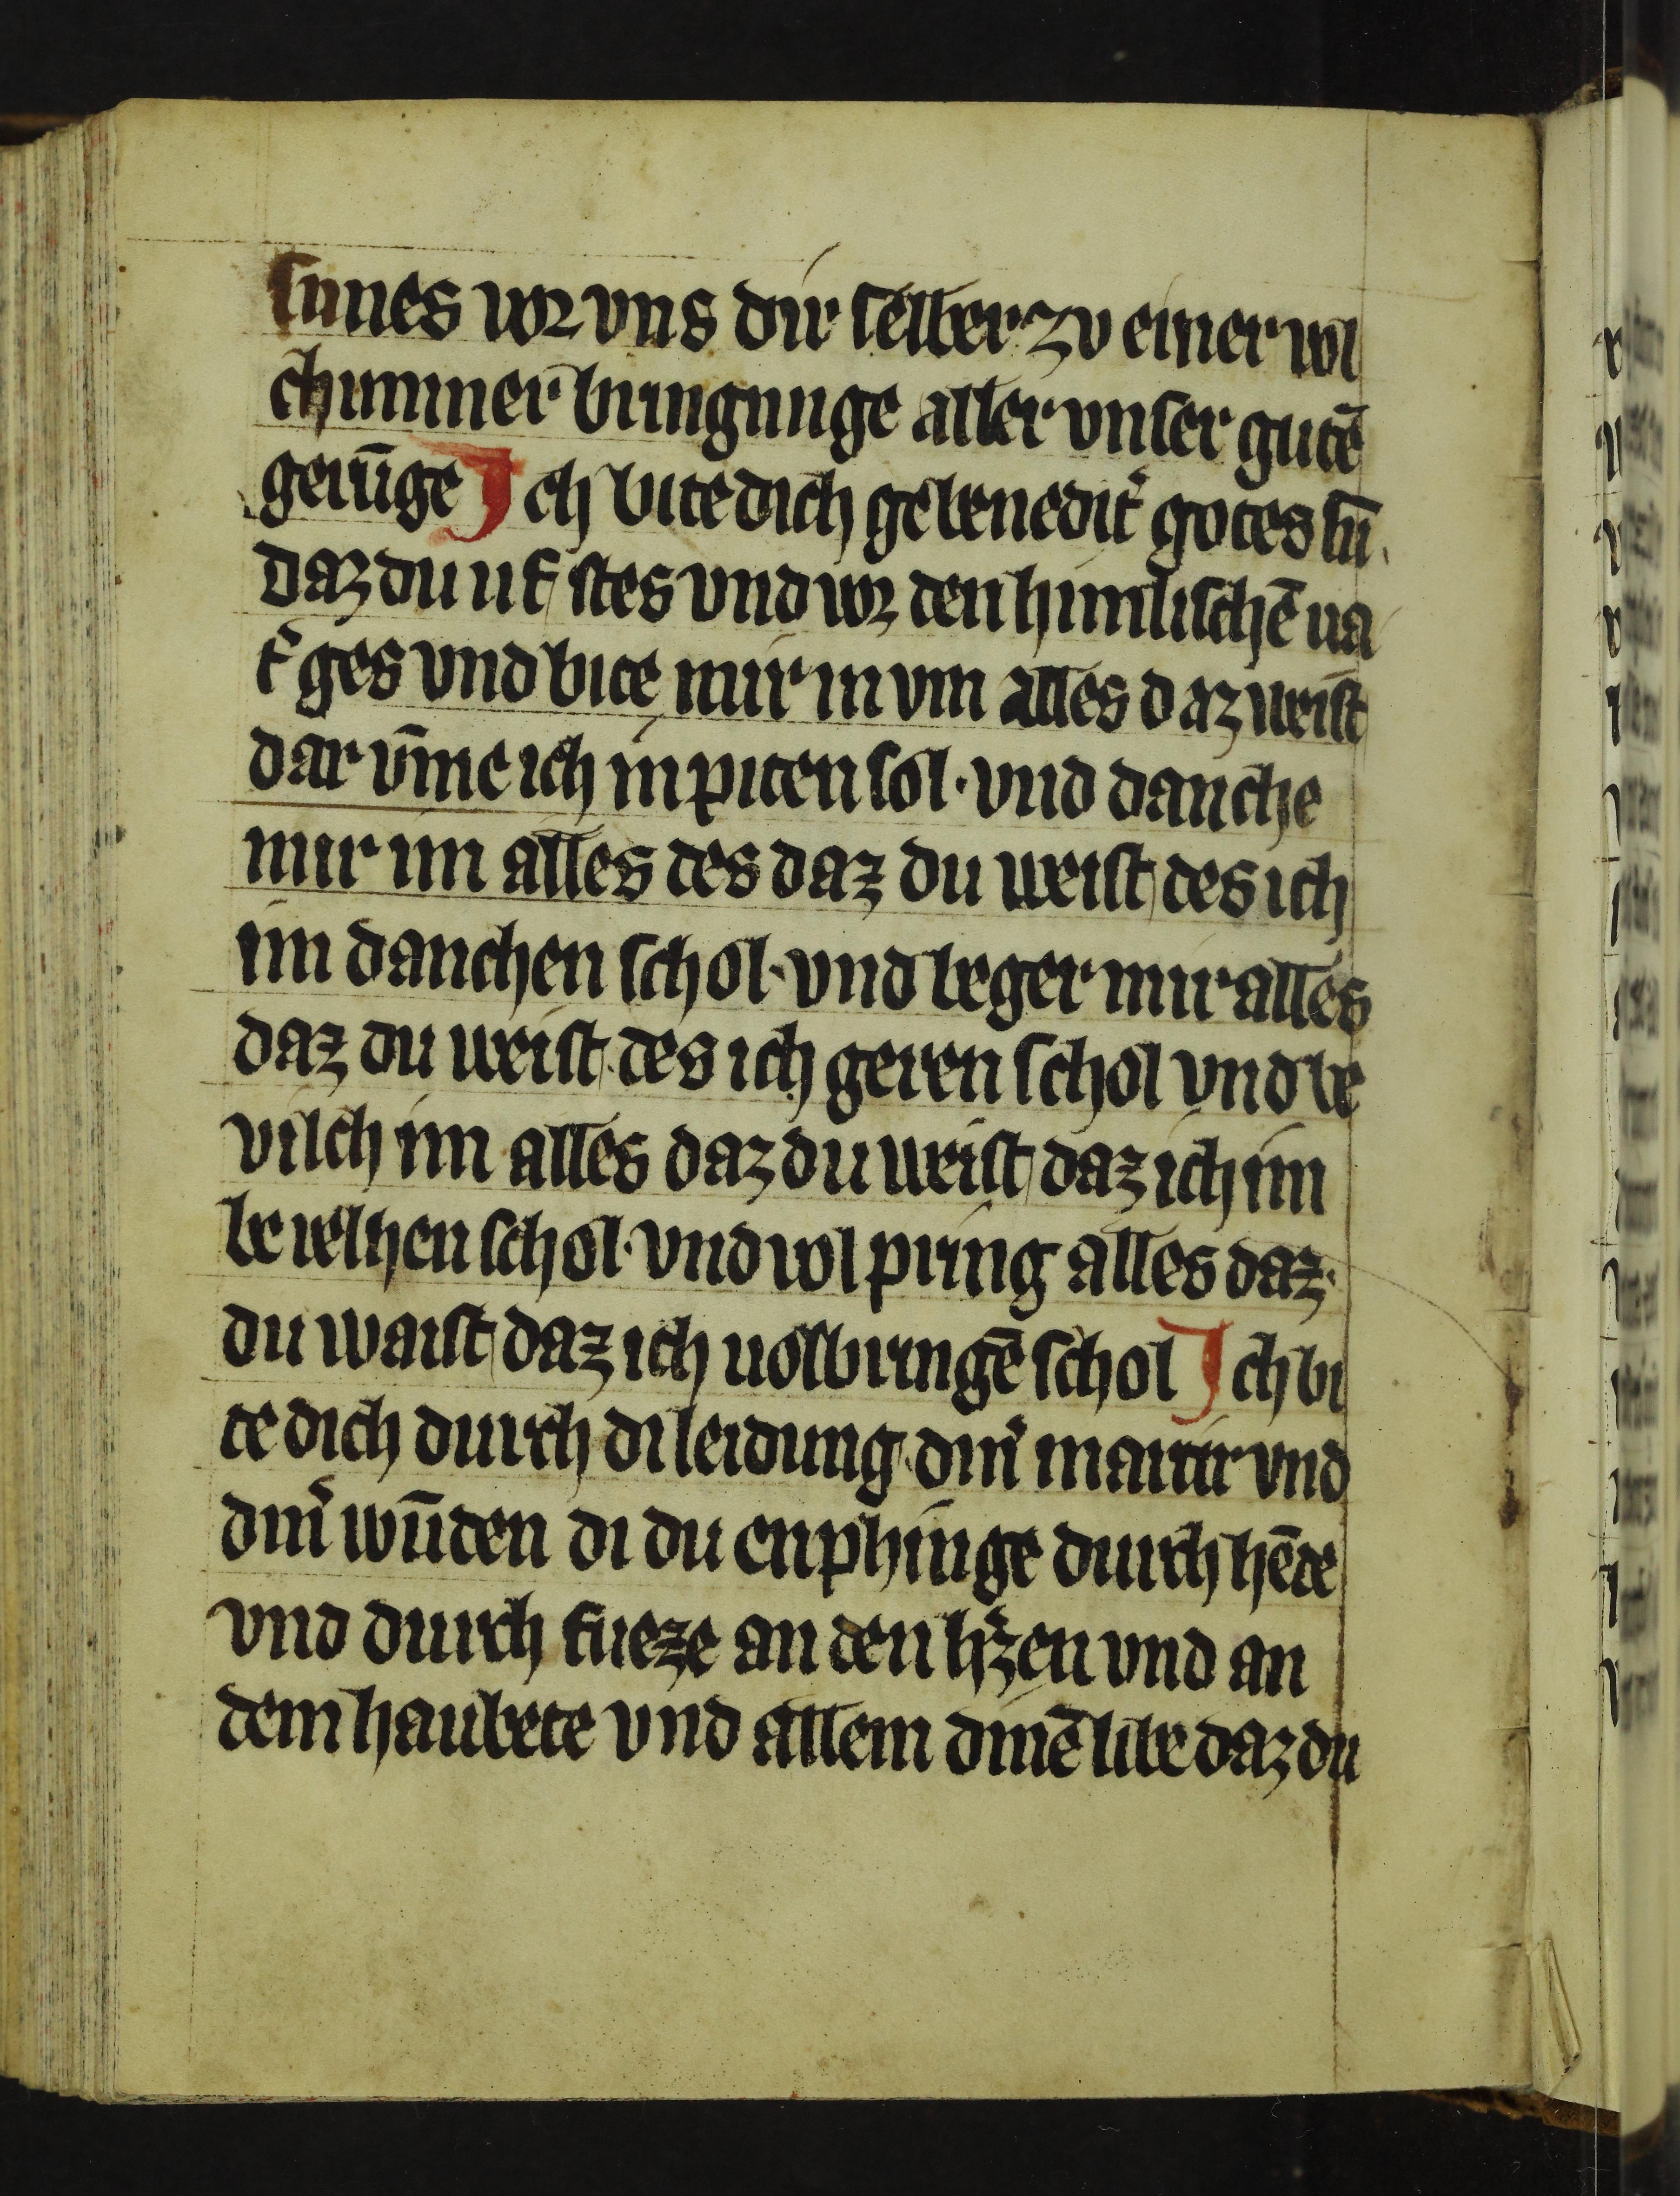 sunes vor vns dir selber zv einer vol
chumner bringunge aller vnser gutē
gerūge Ich bite dich gebenedit᷑ gotes sū.
Daz du uf stes vnd vor den himlischē ua
t᷑ ges vnd bite mir in vm alles daz weist
dar vm̄e ich in piten sol · vnd danche
mir im alles des daz du weist des ich
im danchen schol · vnd beger mir alles
daz du weist · des ich geren schol vnd be
vilch im alles daz du weist daz ich im
be velhen schol · vnd vol pring alles daz ·
du waist daz ich uolbringē schol Ich bi
te dich durch di leidung din᷑ martir vnd
din᷑ wūden di du enphinge durch hēde
vnd durch fueze an den h᷑zen vnd an
dem haubete vnd allem dinē libe daz du